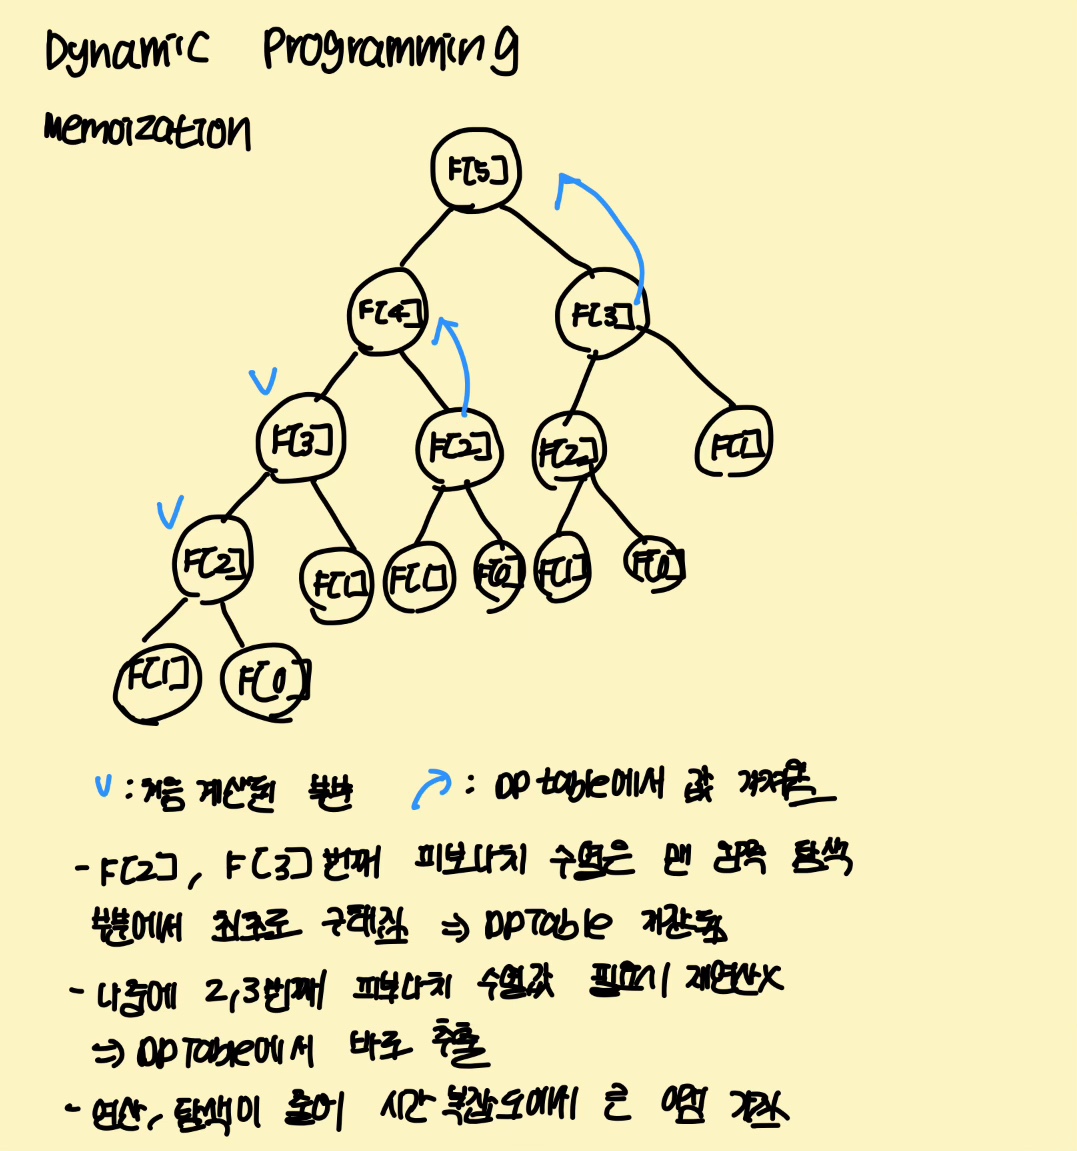 Dynamic Programming
Memoization
F[5]
F[4] F[3]
F[3] F[2] F[2] F[1]
F[2] F[1] F[1] F[0] F[1] F[0]
F[1] F[0]
V : 처음 계산된 부분 : DP table에서 값 가져옴
- F[2], F[3] 번째 피보나치 수열은 맨 왼쪽 탐색
부분에서 최초로 구해짐 ⇒ DP Table 저장됨
- 나중에 2,3번째 피보나치 수열값 필요시 재연산X
⇒ DP Table에서 바로 추출
- 연산, 탐색이 줄어 시간 복잡도에서 큰 이점 가짐